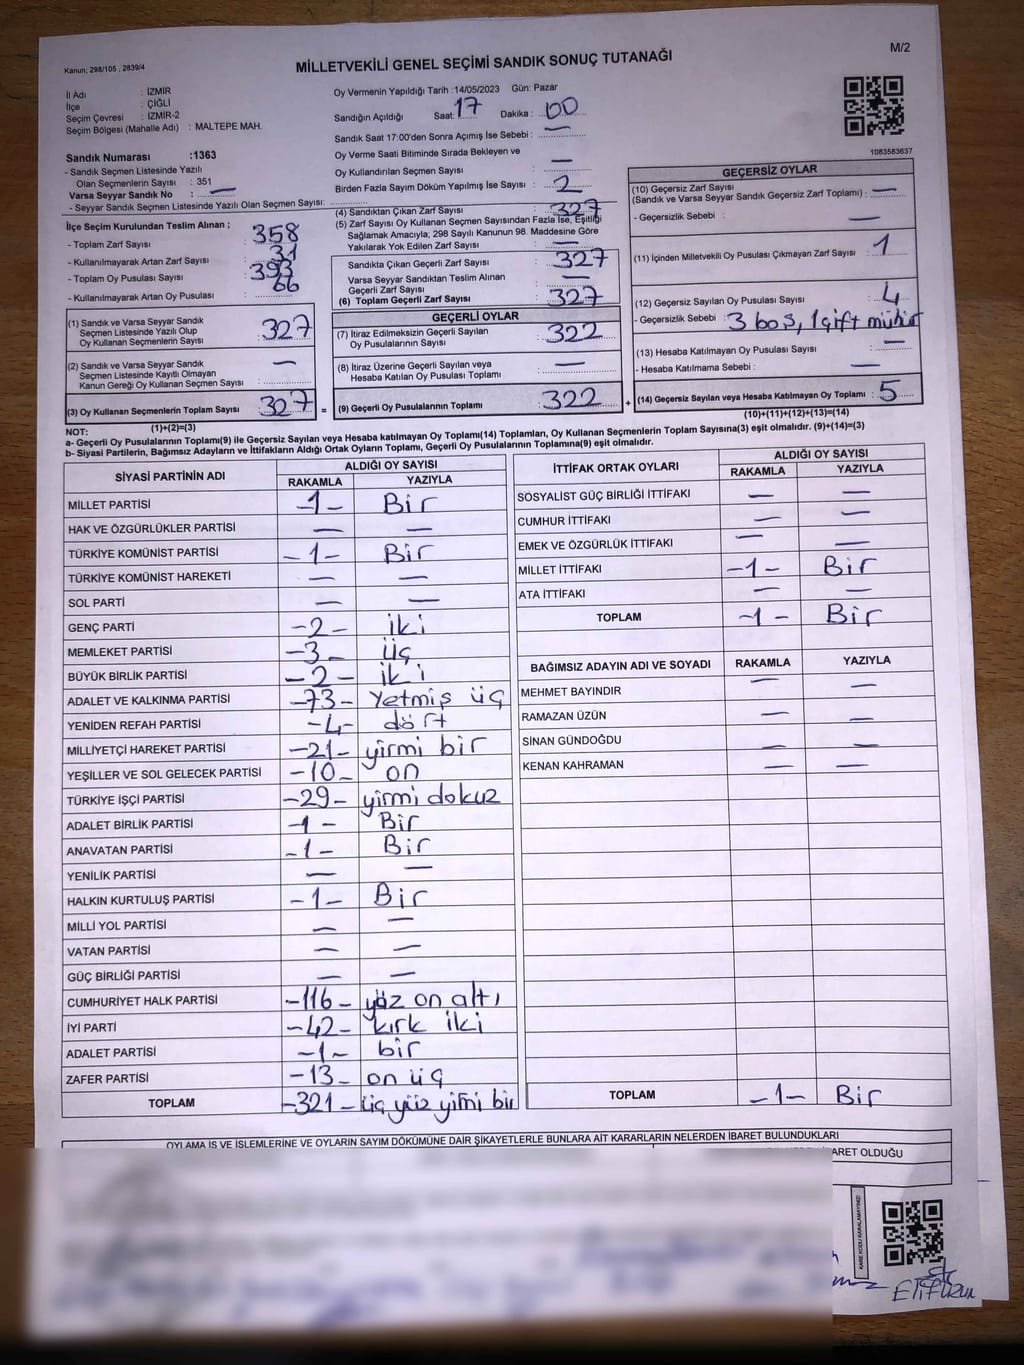 M/2
Kanun; 298/105 , 2839/4
MİLLETVEKİLİ GENEL SEÇİMİ SANDIK SONUÇ TUTANAĞI
İl Adı : İZMİR
İlçe : ÇİĞLİ
Seçim Çevresi : İZMİR-2
Seçim Bölgesi (Mahalle Adı) : MALTEPE MAH.
Sandık Numarası :1363
- Sandık Seçmen Listesinde Yazılı
Olan Seçmenlerin Sayısı : 351
Varsa Seyyar Sandık No : —
- Seyyar Sandık Seçmen Listesinde Yazılı Olan Seçmen Sayısı:
Oy Vermenin Yapıldığı Tarih :14/05/2023 Gün: Pazar
Sandığın Açıldığı Saat: 17 Dakika : 00
Sandık Saat 17:00'den Sonra Açımış İse Sebebi : —
Oy Verme Saati Bitiminde Sırada Bekleyen ve
Oy Kullandırılan Seçmen Sayısı : —
Birden Fazla Sayım Döküm Yapılmış İse Sayısı : 2
1083583637
İlçe Seçim Kurulundan Teslim Alınan ;
- Toplam Zarf Sayısı : 358
- Kullanılmayarak Artan Zarf Sayısı : 31
- Toplam Oy Pusulası Sayısı : 393
- Kullanılmayarak Artan Oy Pusulası : 66
(1) Sandık ve Varsa Seyyar Sandık
Seçmen Listesinde Yazılı Olup
Oy Kullanan Seçmenlerin Sayısı : 327
(2) Sandık ve Varsa Seyyar Sandık
Seçmen Listesinde Kayıtlı Olmayan
Kanun Gereği Oy Kullanan Seçmen Sayısı : —
(3) Oy Kullanan Seçmenlerin Toplam Sayısı : 327 =
(1)+(2)=(3)
(4) Sandıktan Çıkan Zarf Sayısı : 327
(5) Zarf Sayısı Oy Kullanan Seçmen Sayısından Fazla İse, Eşitliği
Sağlamak Amacıyla; 298 Sayılı Kanunun 98. Maddesine Göre
Yakılarak Yok Edilen Zarf Sayısı : —
Sandıkta Çıkan Geçerli Zarf Sayısı : 327
Varsa Seyyar Sandıktan Teslim Alınan
Geçerli Zarf Sayısı : —
(6) Toplam Geçerli Zarf Sayısı : 327
GEÇERLİ OYLAR
(7) İtiraz Edilmeksizin Geçerli Sayılan
Oy Pusulalarının Sayısı : 322
(8) İtiraz Üzerine Geçerli Sayılan veya
Hesaba Katılan Oy Pusulası Toplamı : —
(9) Geçerli Oy Pusulalarının Toplamı : 322 +
GEÇERSİZ OYLAR
(10) Geçersiz Zarf Sayısı : —
(Sandık ve Varsa Seyyar Sandık Geçersiz Zarf Toplamı)
- Geçersizlik Sebebi : —
(11) İçinden Milletvekili Oy Pusulası Çıkmayan Zarf Sayısı : 1
(12) Geçersiz Sayılan Oy Pusulası Sayısı : 4
- Geçersizlik Sebebi : 3 boş, 1 çift mühür
(13) Hesaba Katılmayan Oy Pusulası Sayısı : —
- Hesaba Katılmama Sebebi : —
(14) Geçersiz Sayılan veya Hesaba Katılmayan Oy Toplamı : 5
(10)+(11)+(12)+(13)=(14)
NOT:
a- Geçerli Oy Pusulalarının Toplamı(9) ile Geçersiz Sayılan veya Hesaba katılmayan Oy Toplamı(14) Toplamları, Oy Kullanan Seçmenlerin Toplam Sayısına(3) eşit olmalıdır. (9)+(14)=(3)
b- Siyasi Partilerin, Bağımsız Adayların ve İttifakların Aldığı Ortak Oyların Toplamı, Geçerli Oy Pusulalarının Toplamına(9) eşit olmalıdır.
SİYASİ PARTİNİN ADI
ALDIĞI OY SAYISI
RAKAMLA YAZIYLA
MİLLET PARTİSİ -1- Bir
HAK VE ÖZGÜRLÜKLER PARTİSİ — —
TÜRKİYE KOMÜNİST PARTİSİ -1- Bir
TÜRKİYE KOMÜNİST HAREKETİ — —
SOL PARTİ — —
GENÇ PARTİ -2- iki
MEMLEKET PARTİSİ -3- üç
BÜYÜK BİRLİK PARTİSİ -2- iki
ADALET VE KALKINMA PARTİSİ -73- Yetmiş üç
YENİDEN REFAH PARTİSİ -4- dört
MİLLİYETÇİ HAREKET PARTİSİ -21- yirmi bir
YEŞİLLER VE SOL GELECEK PARTİSİ -10- on
TÜRKİYE İŞÇİ PARTİSİ -29- yirmi dokuz
ADALET BİRLİK PARTİSİ -1- Bir
ANAVATAN PARTİSİ -1- Bir
YENİLİK PARTİSİ — —
HALKIN KURTULUŞ PARTİSİ -1- Bir
MİLLİ YOL PARTİSİ — —
VATAN PARTİSİ — —
GÜÇ BİRLİĞİ PARTİSİ — —
CUMHURİYET HALK PARTİSİ -116- yüz on altı
İYİ PARTİ -42- kırk iki
ADALET PARTİSİ -1- bir
ZAFER PARTİSİ -13- on üç
TOPLAM -321- üç yüz yirmi bir
İTTİFAK ORTAK OYLARI
ALDIĞI OY SAYISI
RAKAMLA YAZIYLA
SOSYALİST GÜÇ BİRLİĞİ İTTİFAKI — —
CUMHUR İTTİFAKI — —
EMEK VE ÖZGÜRLÜK İTTİFAKI — —
MİLLET İTTİFAKI -1- Bir
ATA İTTİFAKI — —
TOPLAM -1- Bir
BAĞIMSIZ ADAYIN ADI VE SOYADI RAKAMLA YAZIYLA
MEHMET BAYINDIR — —
RAMAZAN ÜZÜN — —
SİNAN GÜNDOĞDU — —
KENAN KAHRAMAN — —
TOPLAM -1- Bir
OYLAMA İŞ VE İŞLEMLERİNE VE OYLARIN SAYIM DÖKÜMÜNE DAİR ŞİKAYETLERLE BUNLARA AİT KARARLARIN NELERDEN İBARET BULUNDUKLARI
ARET OLDUĞU
KARE KODU KARALAMAYINIZ!
Elif Uzun